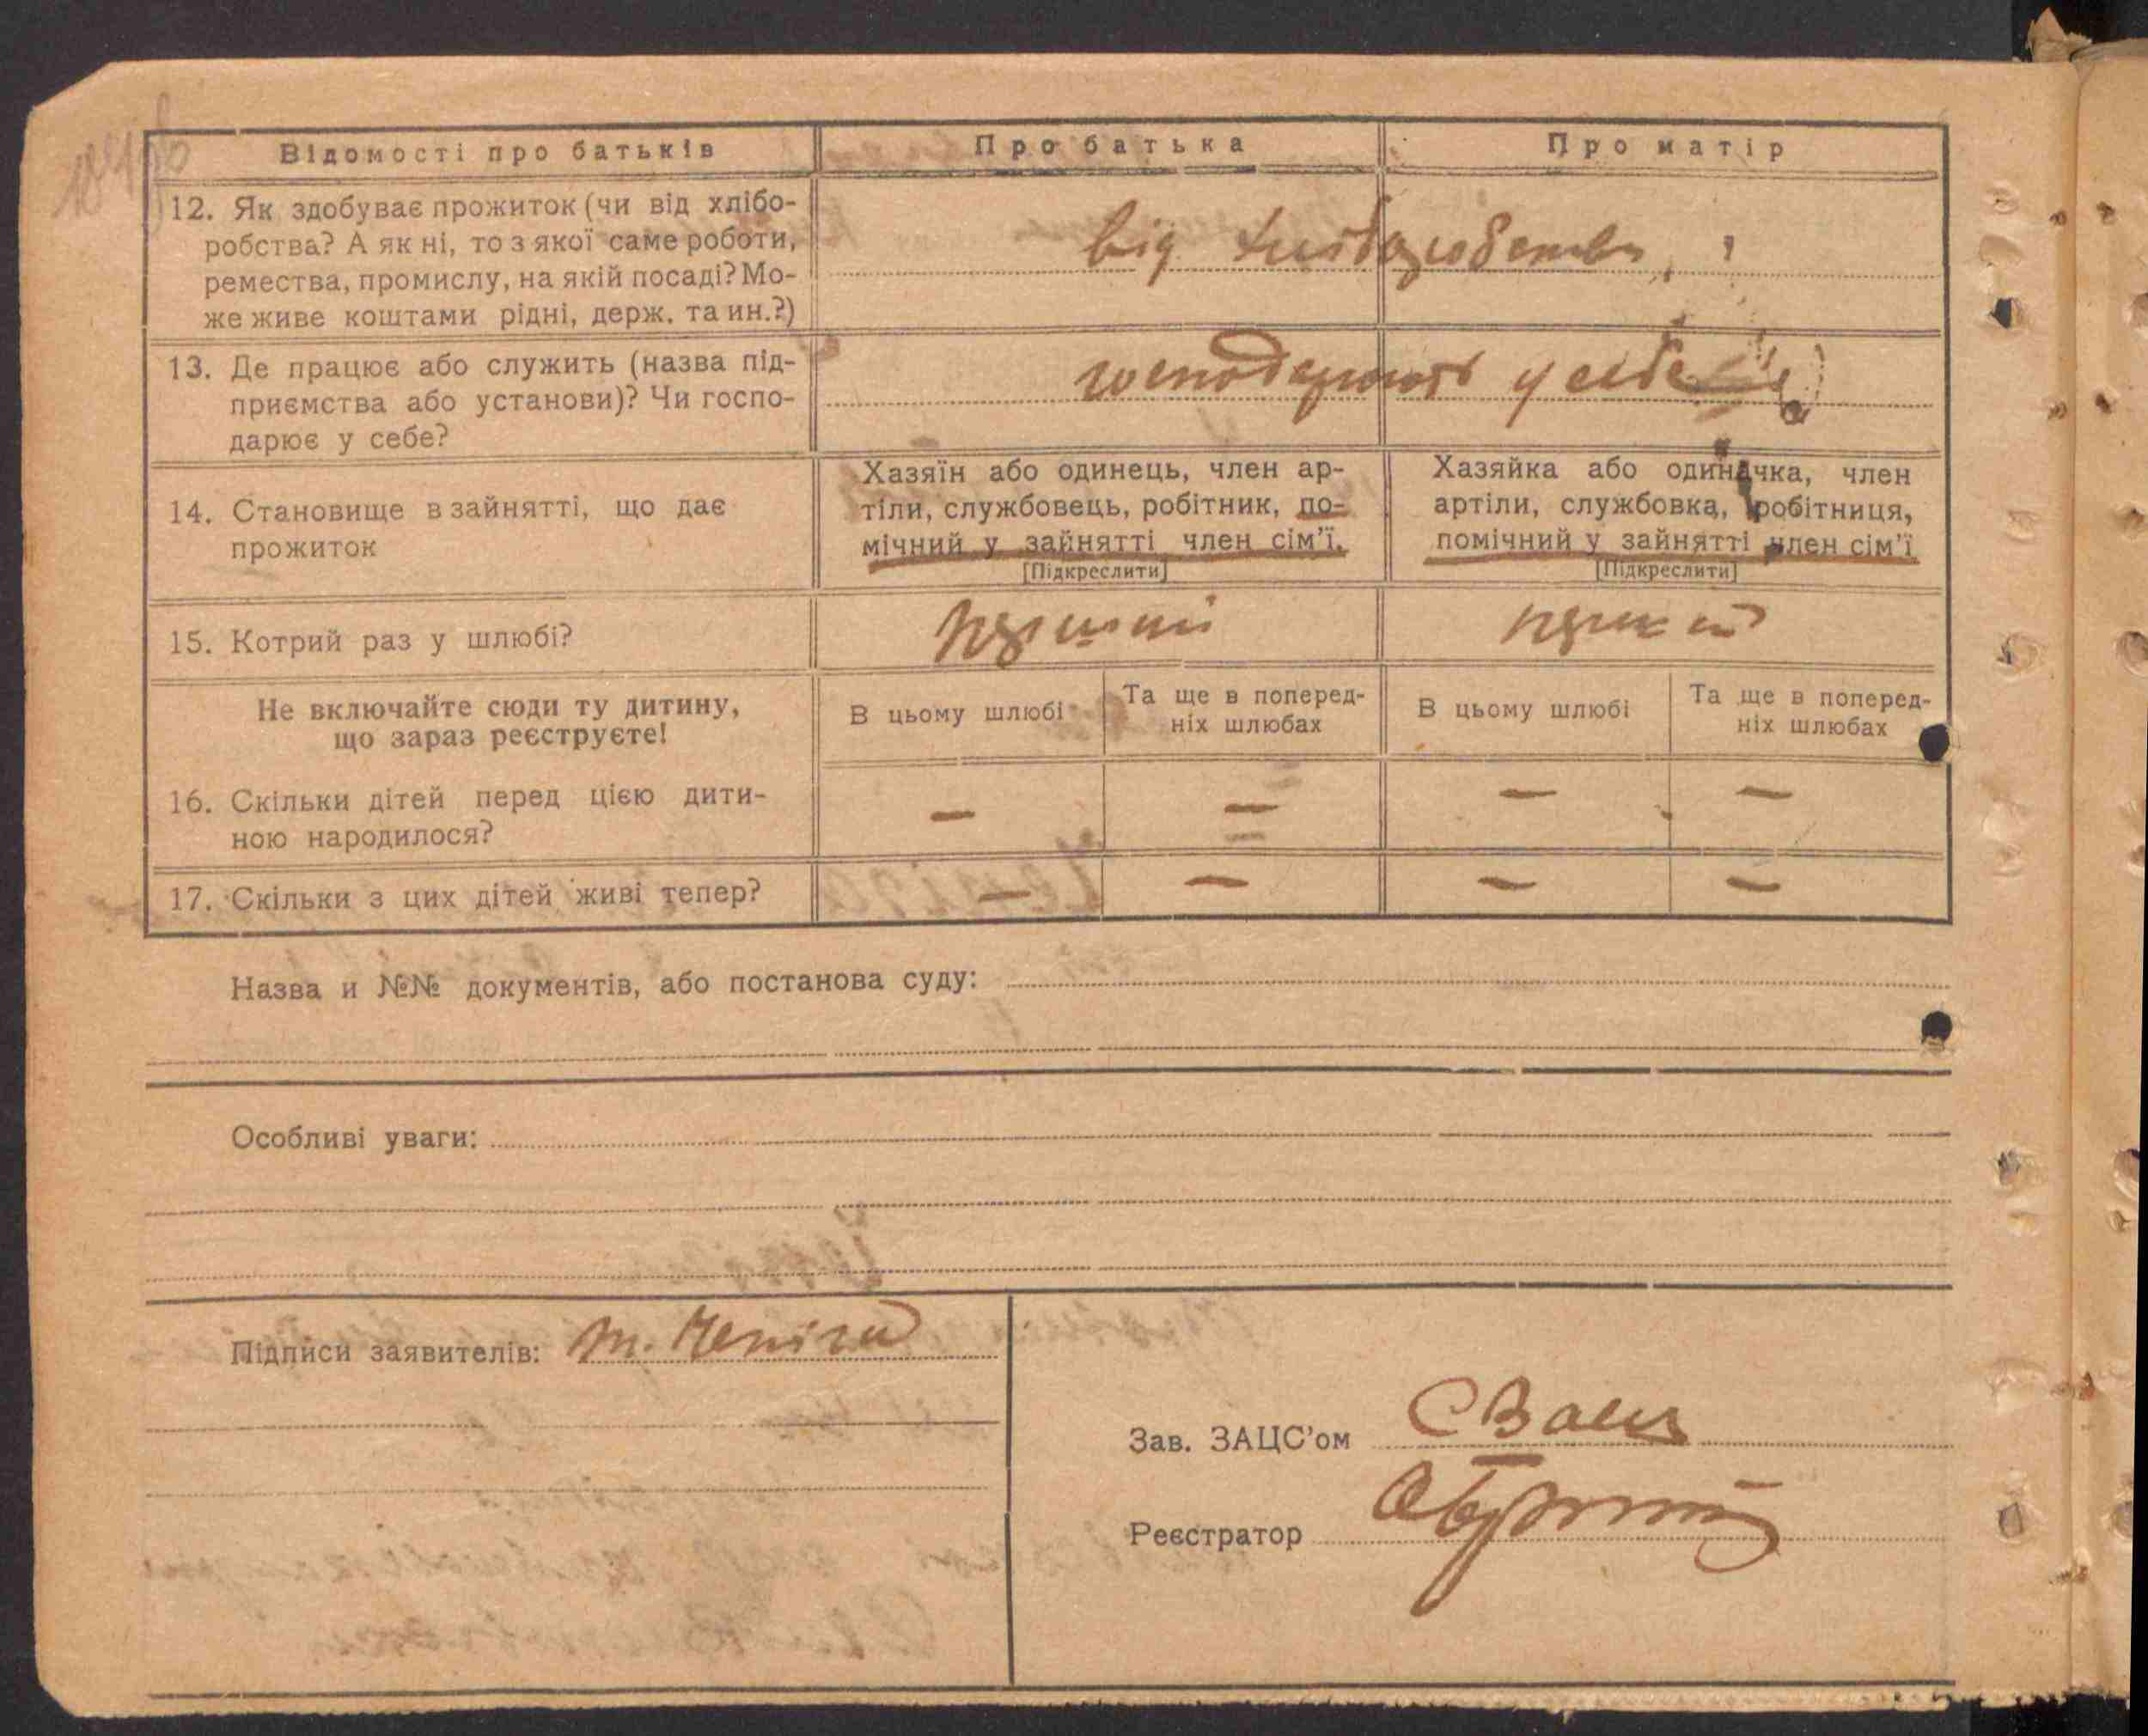 Відомості про батьків
Про батька
Про матір
12. Як здобуває прожиток (чи від хлібо-
робства? А як ні, то з якої саме роботи,
ремества, промислу, на якій посаді? Мо-
же живе коштами рідні, держ. та ин.?)
від хліборобства
13. Де працює або служить (назва під-
приємства або установи)? Чи госпо-
дарює у себе?
господарюють у себе
14. Становище в зайнятті, що дає
прожиток
Хазяїн або одинець, член ар-
тіли, службовець, робітник, по-
мічний у зайнятті член сім'ї.
[Підкреслити]
Хазяйка або одиначка, член
артіли, службовка, робітниця,
помічний у зайнятті член сім'ї
[Підкреслити]
15. Котрий раз у шлюбі?
перший
перший
Не включайте сюди ту дитину,
що зараз реєструєте!
В цьому шлюбі
Та ще в поперед-
ніх шлюбах
В цьому шлюбі
Та ще в поперед-
ніх шлюбах
16. Скільки дітей перед цією дити-
ною народилося?
— — — —
17. Скільки з цих дітей живі тепер?
— — — —
Назва и №№ документів, або постанова суду:
Особливі уваги:
Підписи заявителів: т. Чепіга
Зав. ЗАЦС'ом
Реєстратор